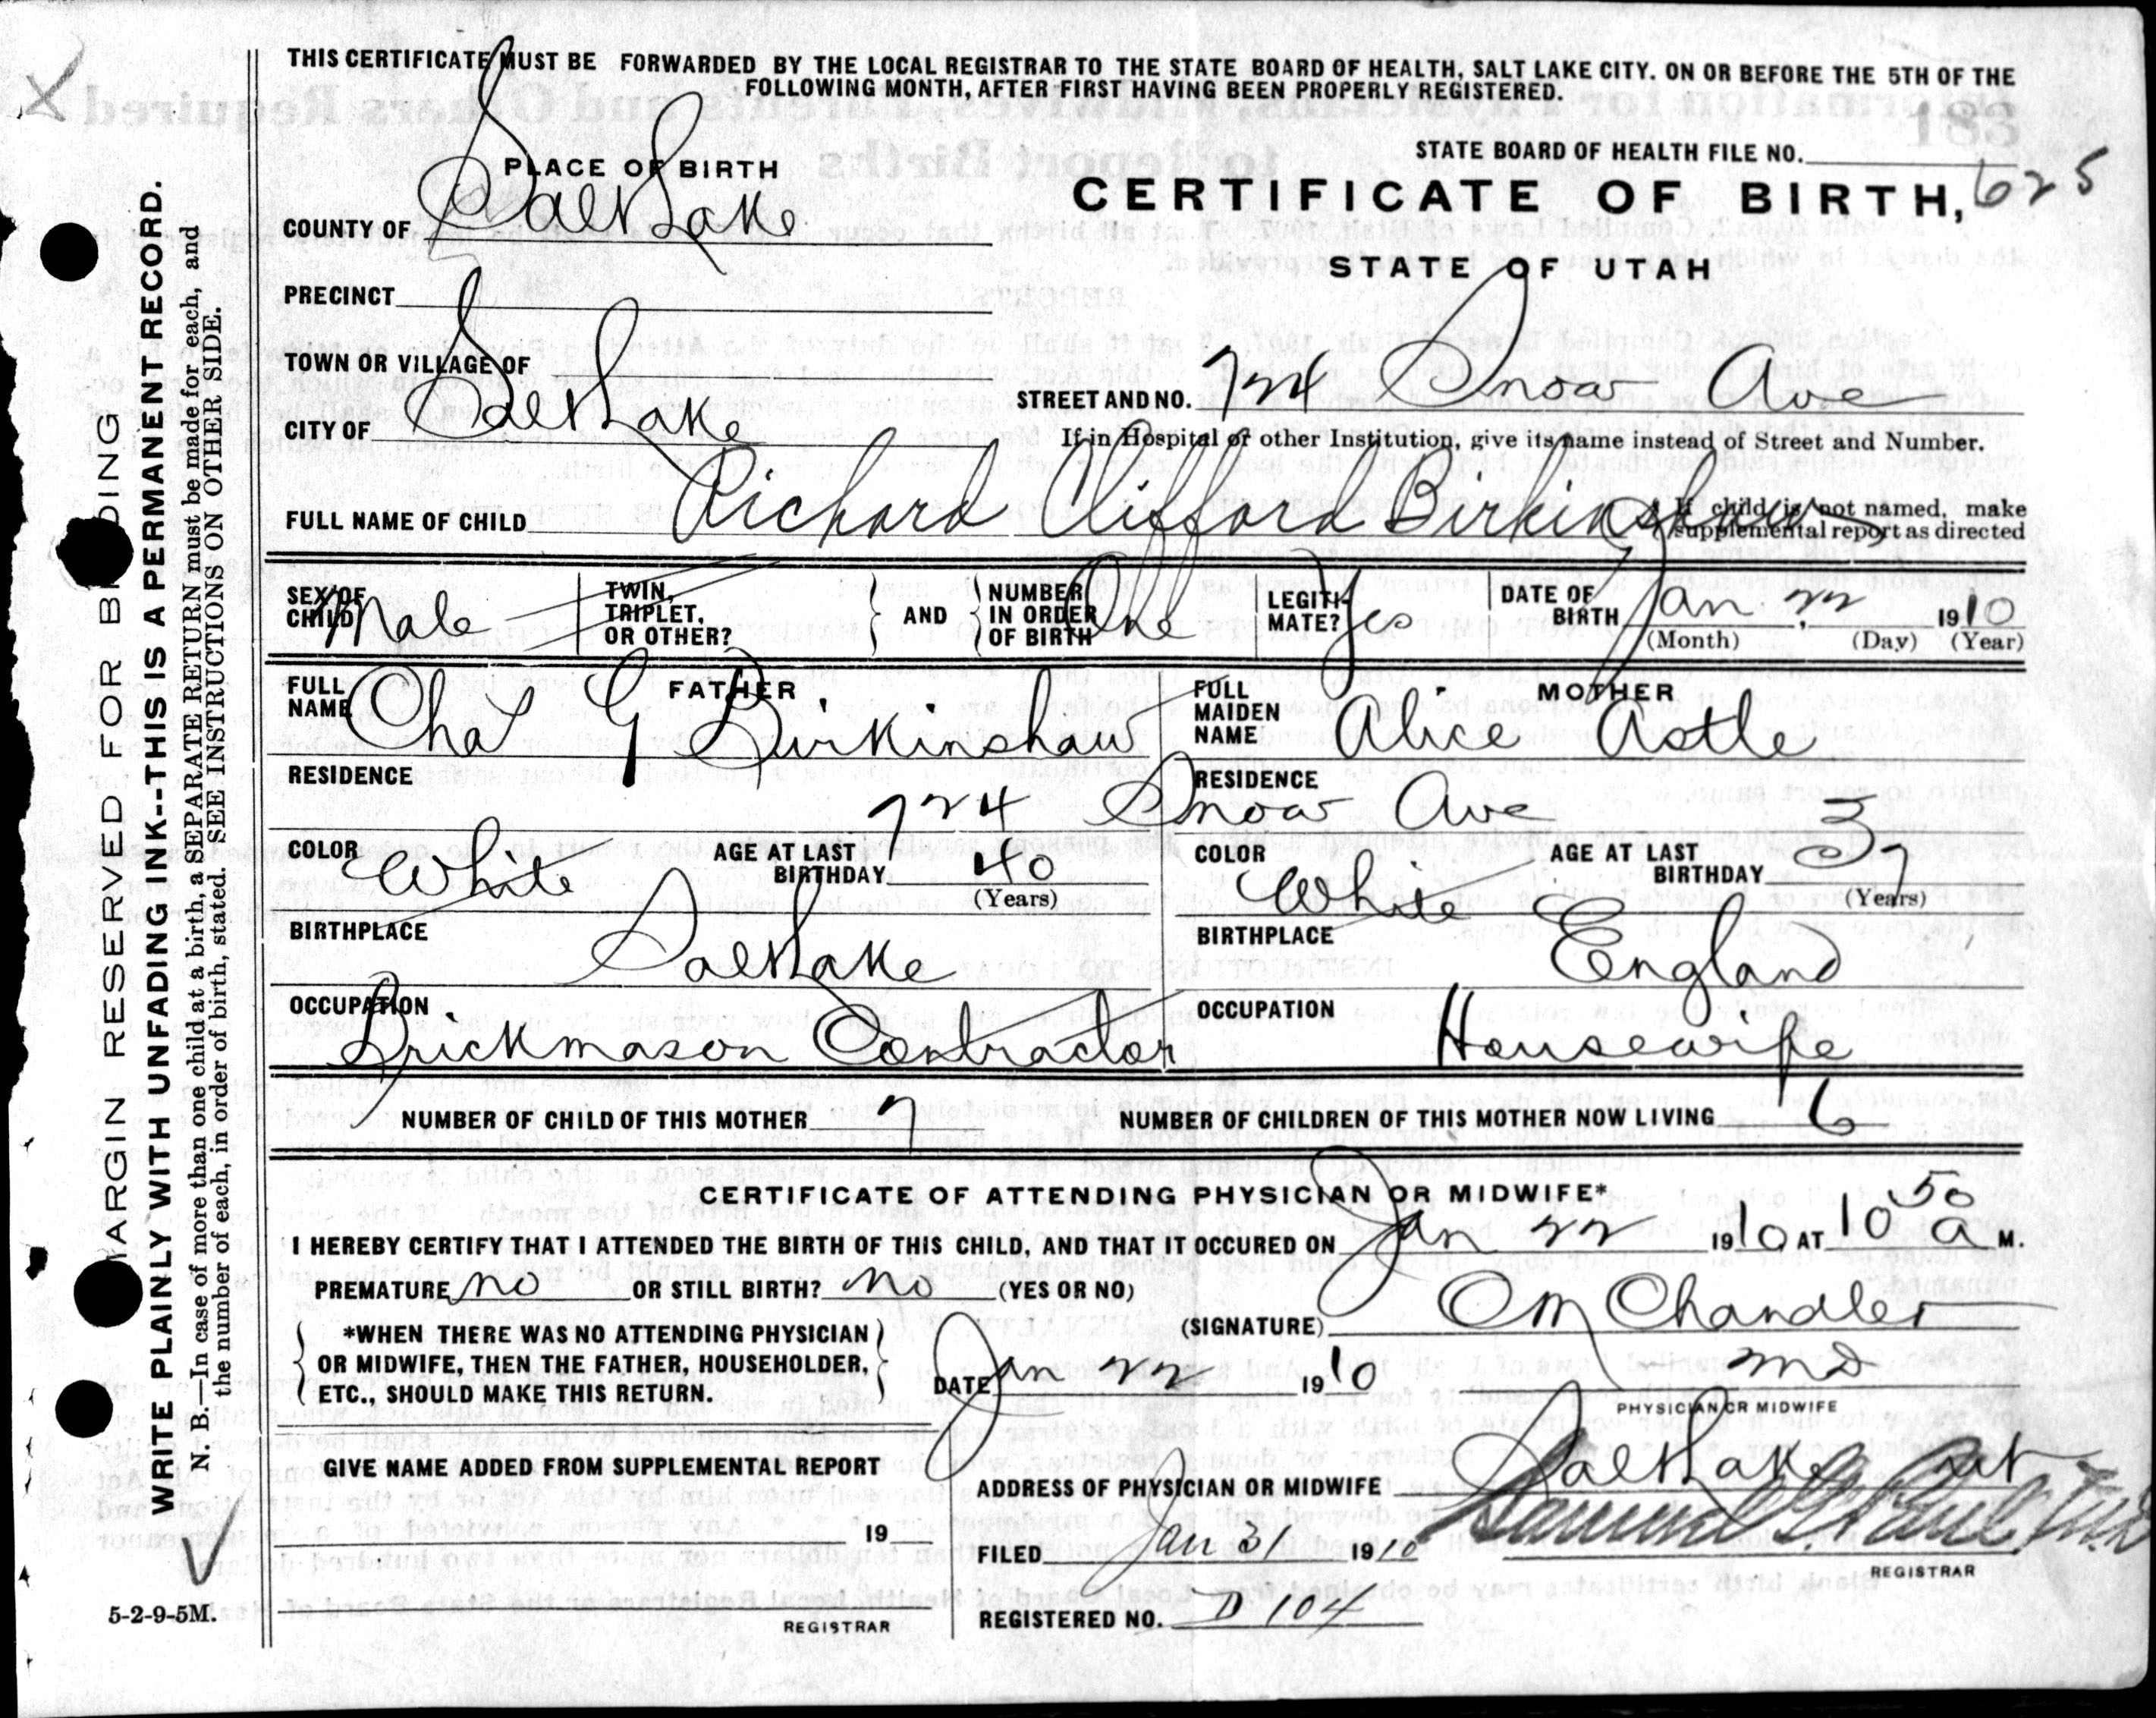 THIS CERTIFICATE MUST BE FORWARDED BY THE LOCAL REGISTRAR TO THE STATE BOARD OF HEALTH, SALT LAKE CITY. ON OR BEFORE THE 5TH OF THE
FOLLOWING MONTH, AFTER FIRST HAVING BEEN PROPERLY REGISTERED.
PLACE OF BIRTH
STATE BOARD OF HEALTH FILE NO.
COUNTY OF Salt Lake
CERTIFICATE OF BIRTH, 625
STATE OF UTAH
PRECINCT
TOWN OR VILLAGE OF
STREET AND NO. 724 Snow Ave
CITY OF Salt Lake
If in Hospital or other Institution, give its name instead of Street and Number.
FULL NAME OF CHILD Richard Clifford Birkinshaw
If child is not named, make
supplemental report as directed
SEX OF CHILD Male
TWIN, TRIPLET, OR OTHER?
AND
NUMBER IN ORDER OF BIRTH One
LEGITIMATE? Yes
DATE OF BIRTH Jan. 22 1910
(Month) (Day) (Year)
FATHER
FULL NAME Chas G Birkinshaw
MOTHER
FULL MAIDEN NAME Alice Astle
RESIDENCE
RESIDENCE
724 Snow Ave
COLOR White
AGE AT LAST BIRTHDAY 40
(Years)
COLOR White
AGE AT LAST BIRTHDAY 37
(Years)
BIRTHPLACE Salt Lake
BIRTHPLACE England
OCCUPATION
Brickmason Contractor
OCCUPATION
Housewife
NUMBER OF CHILD OF THIS MOTHER 7
NUMBER OF CHILDREN OF THIS MOTHER NOW LIVING 6
CERTIFICATE OF ATTENDING PHYSICIAN OR MIDWIFE*
I HEREBY CERTIFY THAT I ATTENDED THE BIRTH OF THIS CHILD, AND THAT IT OCCURED ON Jan 22 1910 AT 10 50 a M.
PREMATURE no OR STILL BIRTH? no (YES OR NO)
(SIGNATURE) O M Chandler
*WHEN THERE WAS NO ATTENDING PHYSICIAN
OR MIDWIFE, THEN THE FATHER, HOUSEHOLDER,
ETC., SHOULD MAKE THIS RETURN.
DATE Jan 22 1910
MD
PHYSICIAN OR MIDWIFE
GIVE NAME ADDED FROM SUPPLEMENTAL REPORT
ADDRESS OF PHYSICIAN OR MIDWIFE Salt Lake Ut
19
FILED Jan 31 1910
Samuel G. Paul, M.D.
REGISTRAR
REGISTERED NO. D 104
REGISTRAR
MARGIN RESERVED FOR BINDING
WRITE PLAINLY WITH UNFADING INK--THIS IS A PERMANENT RECORD.
N. B.—In case of more than one child at a birth, a SEPARATE RETURN must be made for each, and
the number of each, in order of birth, stated. SEE INSTRUCTIONS ON OTHER SIDE.
5-2-9-5M.